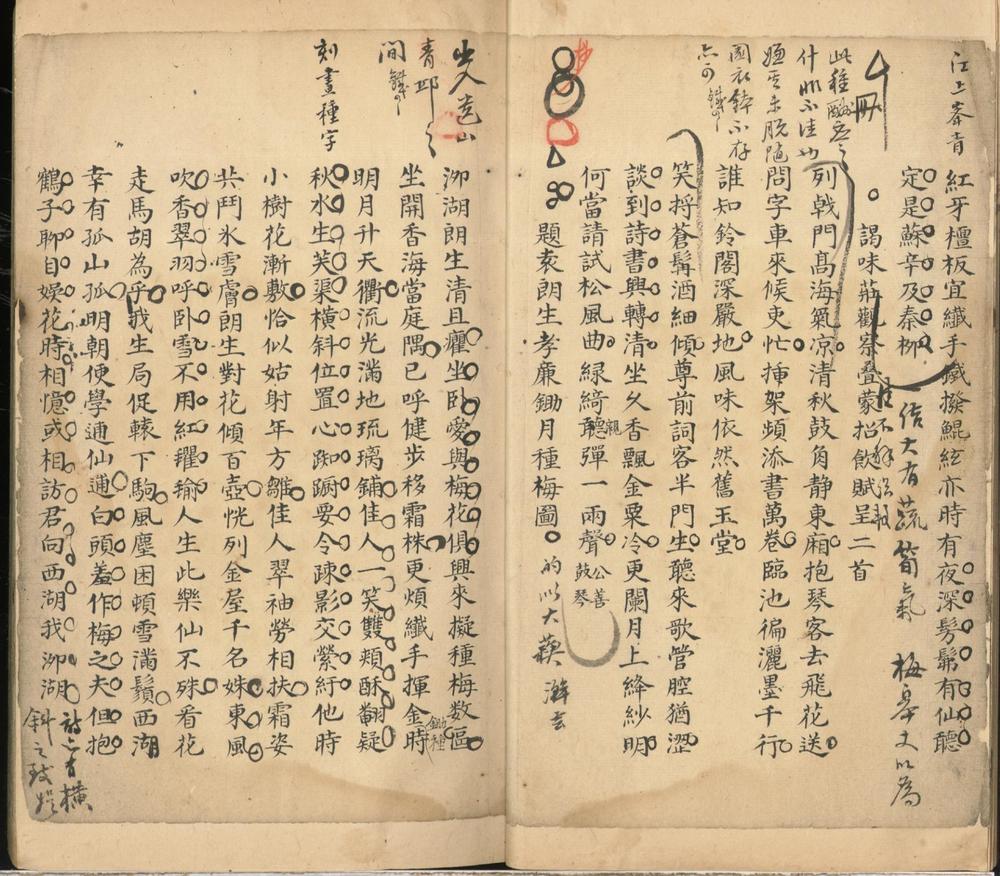 江上峯青
紅牙檀板宜纖手鐵撥鯤絃亦時有夜深髣髴有仙聽
定是蘇辛及秦柳
倍大有蔬筍氣
謁味莊觀察叠蒙招飲賦呈二首
刪
列戟門高海氣凉清秋鼓角静東廂抱琴客去飛花送
問字車來候吏忙揷架頻添書萬卷臨池徧灑墨千行
誰知鈴閣深嚴地風味依然舊玉堂
笑捋蒼髯酒細傾尊前詞客半門生聽來歌管腔猶澀
談到詩書興轉清坐久香飄金粟冷更闌月上絳紗明
何當請試松風曲緑綺親聽彈一兩聲公善鼓琴
題袁朗生孝廉鋤月種梅圖
出入遺山
青邱之
間
泖湖朗生清且癯坐卧愛與梅花俱興來擬種梅数區
坐開香海當庭隅已呼健步移霜株更煩纖手揮金鋤種時
明月升天衢流光滿地琉璃鋪佳人一笑雙頰酥翻疑
刻畫種字
秋水生芙渠橫斜位置心踟蹰要令踈影交縈紆他時
小樹花漸敷恰似姑射年方雛佳人翠袖勞相扶霜姿
共鬥氷雪膚朗生對花傾百壺恍列金屋千名姝東風
吹香翠羽呼卧雪不用紅氍毹人生此樂仙不殊看花
走馬胡為乎我生局促轅下駒風塵困頓雪滿鬚西湖
幸有孤山孤明朝便學通仙逋白頭羞作梅之夫但抱
鶴子聊自娛花時相憶或相訪君向西湖我泖湖